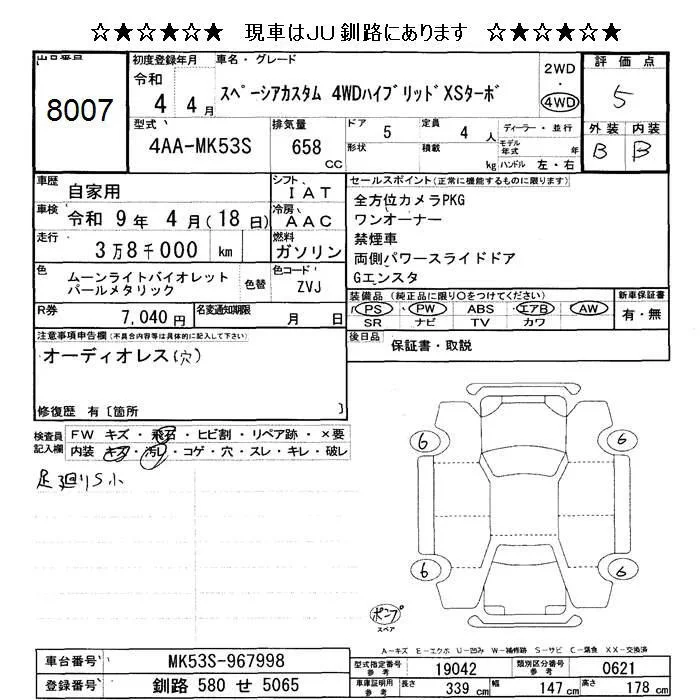 ☆★☆★☆★ 現車はJU釧路にあります ☆★☆★☆★
出品番号 8007
初度登録年月 令和 4 4月
車名・グレード スペーシアカスタム 4WDハイブリッドXSターボ
2WD・4WD
評価点 5
型式 4AA-MK53S
排気量 658 CC
ドア 5 定員 4 人 ディーラー・並行
形状 積載 kg モデル年式 年 ハンドル 左・右
外装 内装
B B
車歴 自家用
シフト IAT
車検 令和 9 年 4 月(18 日)
冷房 AAC
走行 3万8千000 km
燃料 ガソリン
色 ムーンライトバイオレットパールメタリック 色替
色コード ZVJ
R券 7,040 円 名変通知期限 月 日
セールスポイント(正常に機能するものに限ります)
全方位カメラPKG
ワンオーナー
禁煙車
両側パワースライドドア
Gエンスタ
装備品(純正品に限り○をつけてください) 新車保証書
PS・PW・ABS・エアB・AW 有・無
SR ナビ TV カワ
後日品 保証書・取説
注意事項申告欄(不具合内容等は具体的に記入して下さい)
オーディオレス(穴)
修復歴 有〔箇所 〕
検査員記入欄
FW キズ・飛石・ヒビ割・リペア跡・×要
内装 キズ・汚レ・コゲ・穴・スレ・キレ・破レ
足廻りS小
6 6
6 6
ポンプ
スペア
A-キズ E-エクボ U-凹み W-補修跡 S-サビ C-腐食 XX-交換済
車台番号 MK53S-967998
登録番号 釧路 580 せ 5065
型式指定番号 参考 19042 類別区分番号 参考 0621
車庫証明用 参考 長さ 339 cm 幅 147 cm 高さ 178 cm